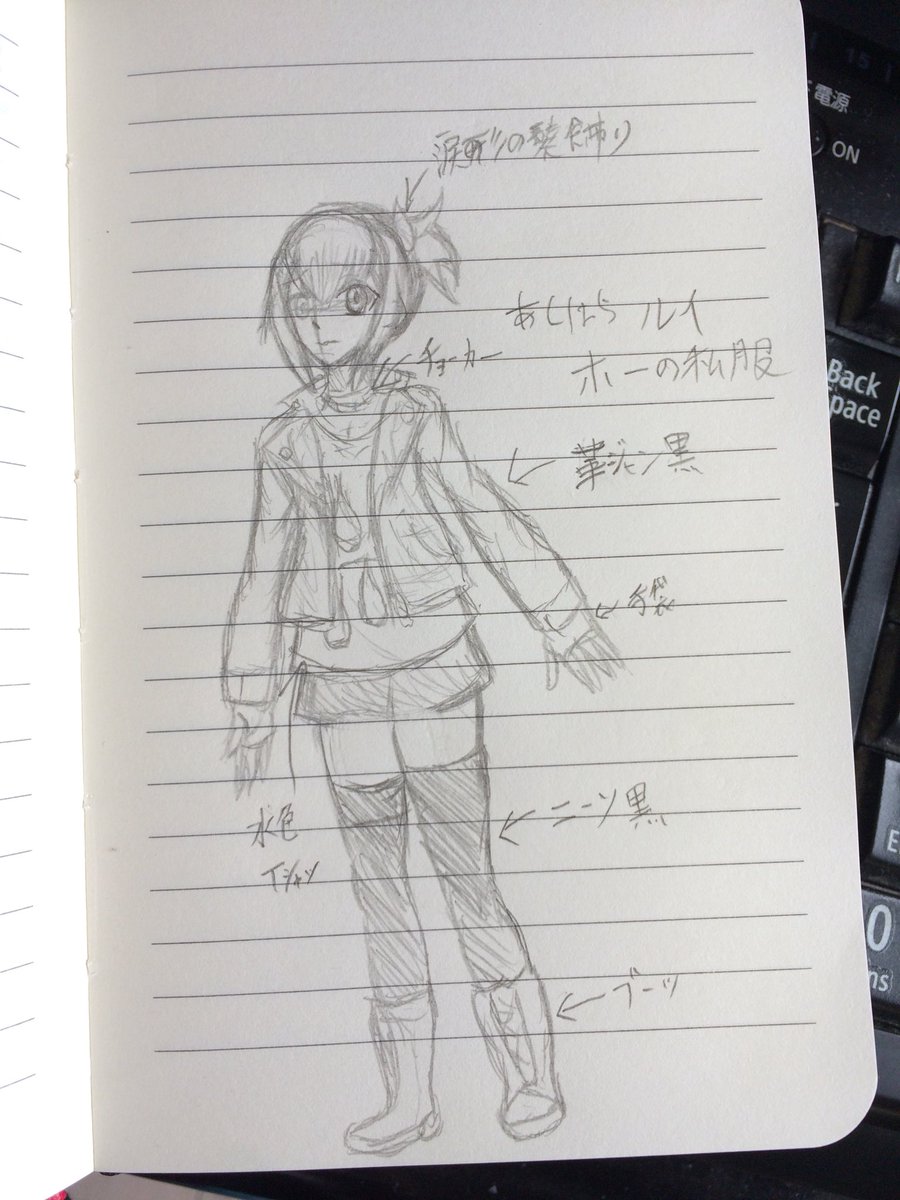 涙形の髪飾り
あしはら ルイ
ホーの私服
チョーカー
革ジャン 黒
手袋
ニーソ 黒
水色
Tシャツ
ブーツ
電源
ON
Back
pace
0